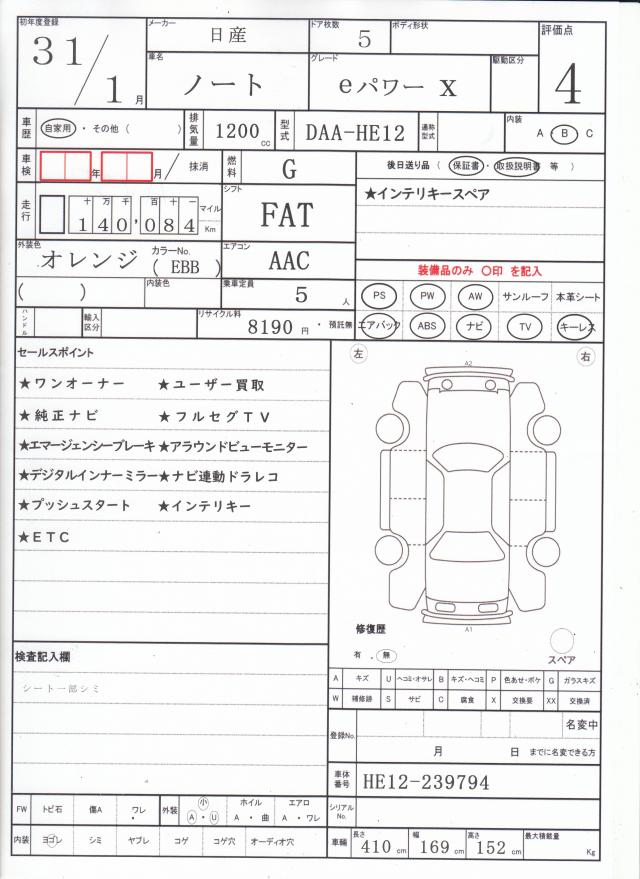 初年度登録 メーカー 日産 ドア枚数 5 ボディ形状 評価点
31/1月 車名 ノート グレード eパワー x 駆動区分 4
車歴 自家用 ・ その他 ( ) 排気量 1200 cc 型式 DAA-HE12 通称型式 内装 A ・ B C
車検 年 月 / 抹消 燃料 G 後日送り品 ( 保証書 ・ 取扱説明書 等 )
走行 十 万 千 百 十 一 140,084 マイル Km シフト FAT ★インテリキースペア
外装色 オレンジ カラーNo. ( EBB ) エアコン AAC
装備品のみ 〇印 を記入
( ) 内装色 乗車定員 5 人 PS PW AW サンルーフ 本革シート
ハンドル 輸入区分 リサイクル料 8190 円 ・ 預託無 エアバック ABS ナビ TV キーレス
セールスポイント
左 右
A2
★ワンオーナー ★ユーザー買取
★純正ナビ ★フルセグTV
★エマージェンシーブレーキ★アラウンドビューモニター
★デジタルインナーミラー★ナビ連動ドラレコ
★プッシュスタート ★インテリキー
★ETC
A1
修復歴
有 . 無
スペア
検査記入欄
シート一部シミ
A キズ U ヘコミ・オサレ B キズ・ヘコミ P 色あせ・ボケ G ガラスキズ
W 補修跡 S サビ C 腐食 X 交換要 XX 交換済
登録No. 名変中
月 日 までに名変できる方
車体番号 HE12-239794
FW トビ石 傷A ワレ 外装 小 A ・ U ホイル A ・ 曲 エアロ A ・ ワレ
シリアルNo.
内装 ヨゴレ シミ ヤブレ コゲ コゲ穴 オーディオ穴
車輛 長さ 410 cm 幅 169 cm 高さ 152 cm 最大積載量 Kg